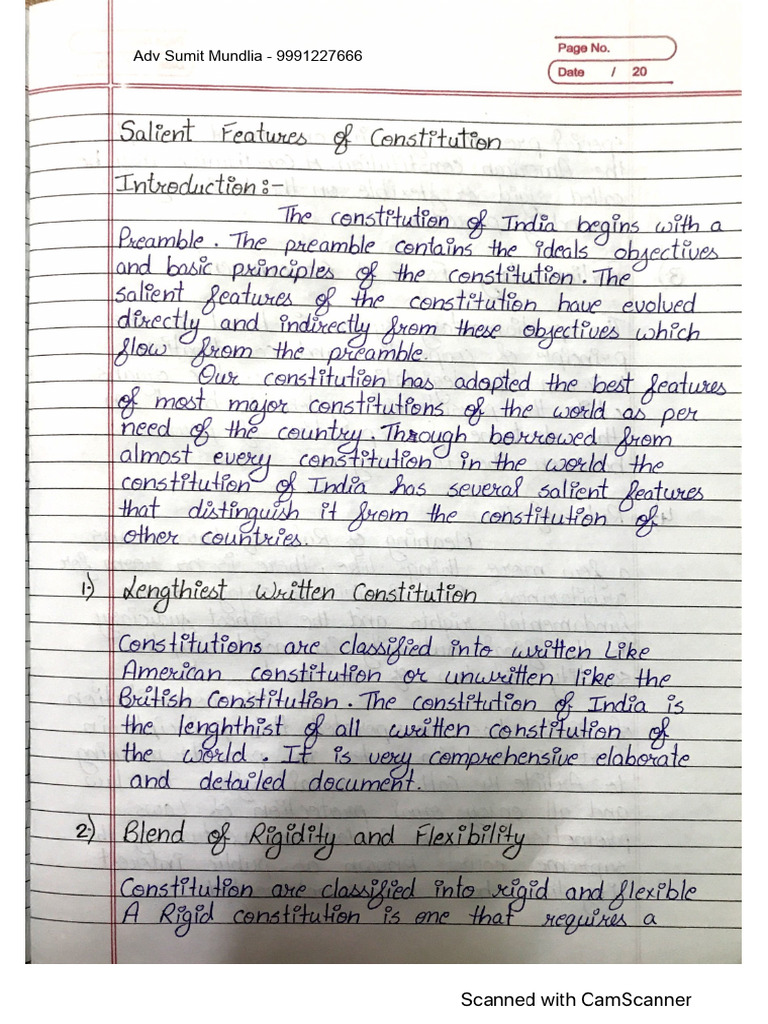 Adv Sumit Mundlia - 9991227666
Page No.
Date / 20
Salient Features of Constitution
Introduction:-
The constitution of India begins with a
Preamble. The preamble contains the ideals objectives
and basic principles of the constitution. The
salient features of the constitution have evolved
directly and indirectly from these objectives which
flow from the preamble.
Our constitution has adopted the best features
of most major constitutions of the world as per
need of the country. Through borrowed from
almost every constitution in the world the
constitution of India has several salient features
that distinguish it from the constitution of
other countries.
1.) Lengthiest Written Constitution
Constitutions are classified into written Like
American constitution or unwritten like the
British Constitution. The constitution of India is
the lenghthist of all written constitution of
the world. It is very comprehensive elaborate
and detailed document.
2.) Blend of Rigidity and Flexibility
Constitution are classified into rigid and flexible
A Rigid constitution is one that requires a
Scanned with CamScanner